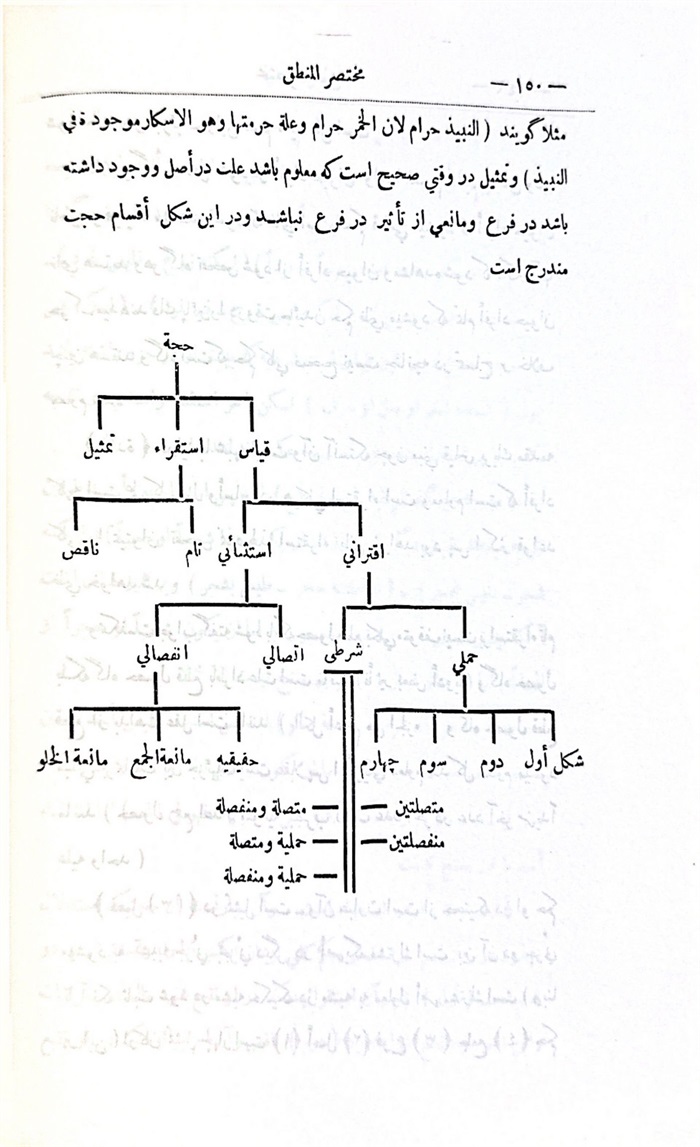 — ١٥٠ —
مختصر المنطق
مثلا گویند ( النبیذ حرام لان الخمر حرام وعلة حرمتها وهو الاسكار موجودة في
النبیذ ) وتمثیل در وقتي صحیح است که معلوم باشد علت در أصل ووجود داشته
باشد در فرع ومانعي از تأثیر در فرع نباشد ودر این شکل أقسام حجت
مندرج است
حجة
قیاس استقراء تمثیل
اقتراني استثنائي تام ناقص
حملي شرطى اتصالي انفصالي
شکل أول دوم سوم چهارم حقیقیه مانعة الجمع مانعة الخلو
متصلتین — — متصلة ومنفصلة
منفصلتین — — حملیة ومتصلة
— حملیة ومنفصلة